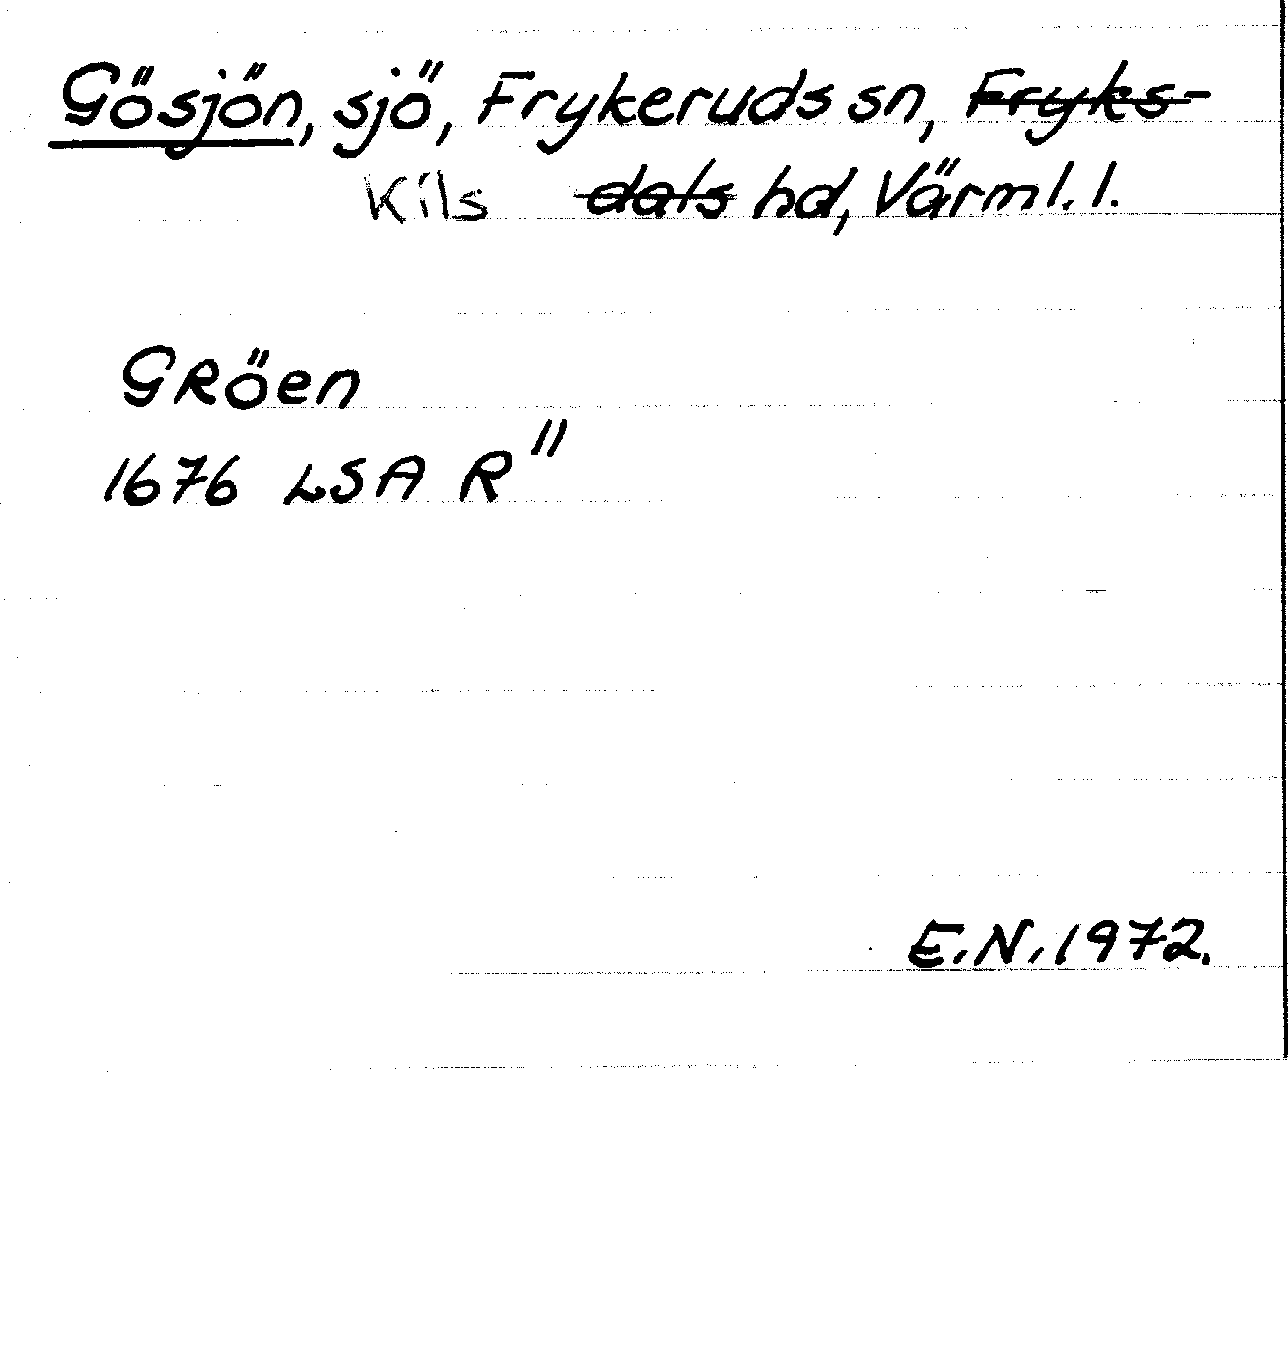 Gösjön, sjö, Frykeruds sn, Fryks-
Kils dals hd, Värml. l.
GRöen
1676 LSA R"
E.N. 1972.